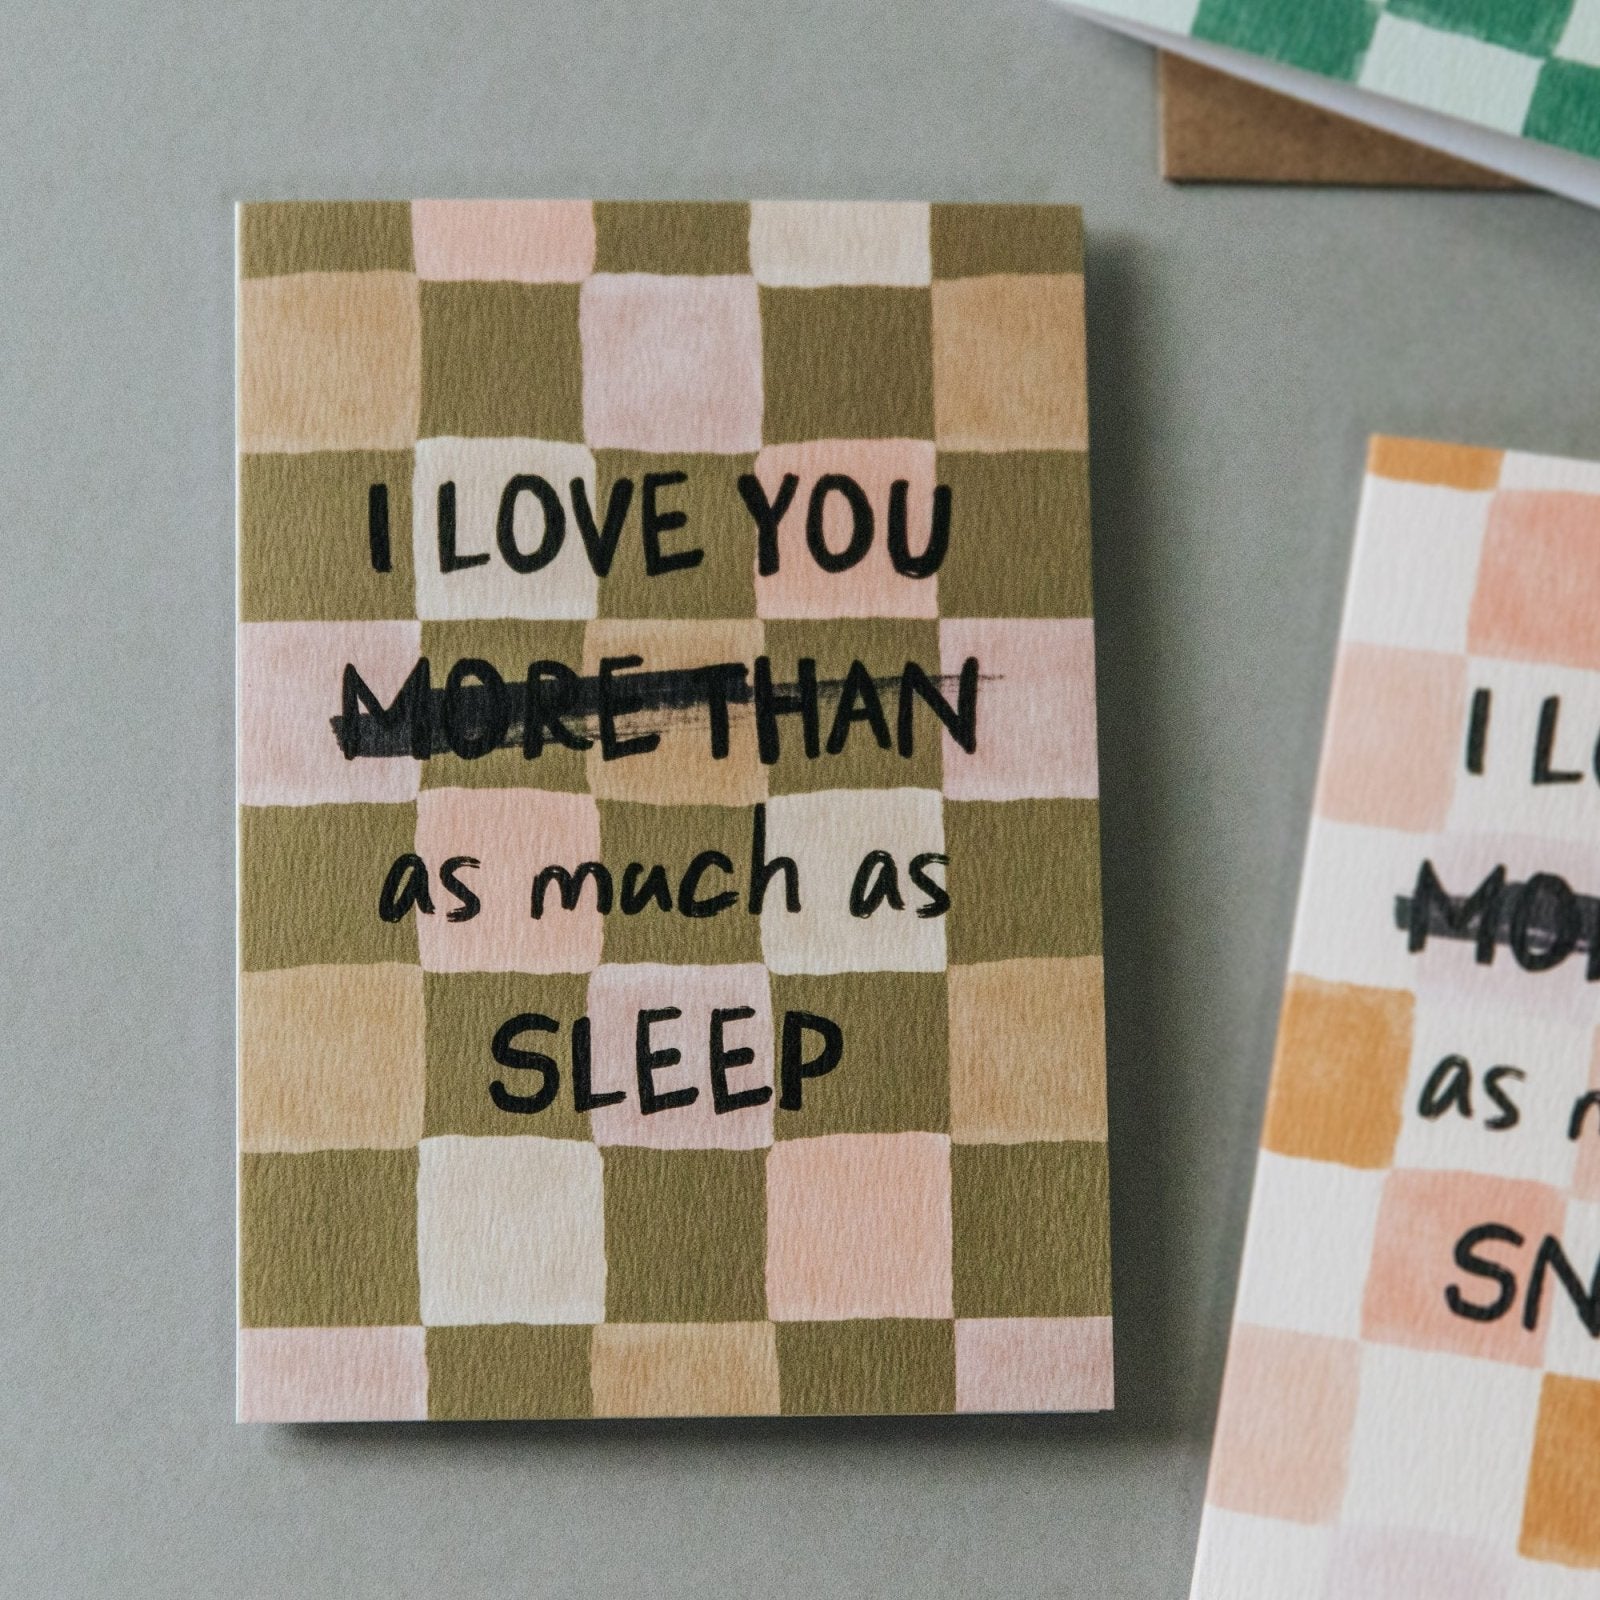 I LOVE YOU
MORE THAN
as much as
SLEEP
I
as